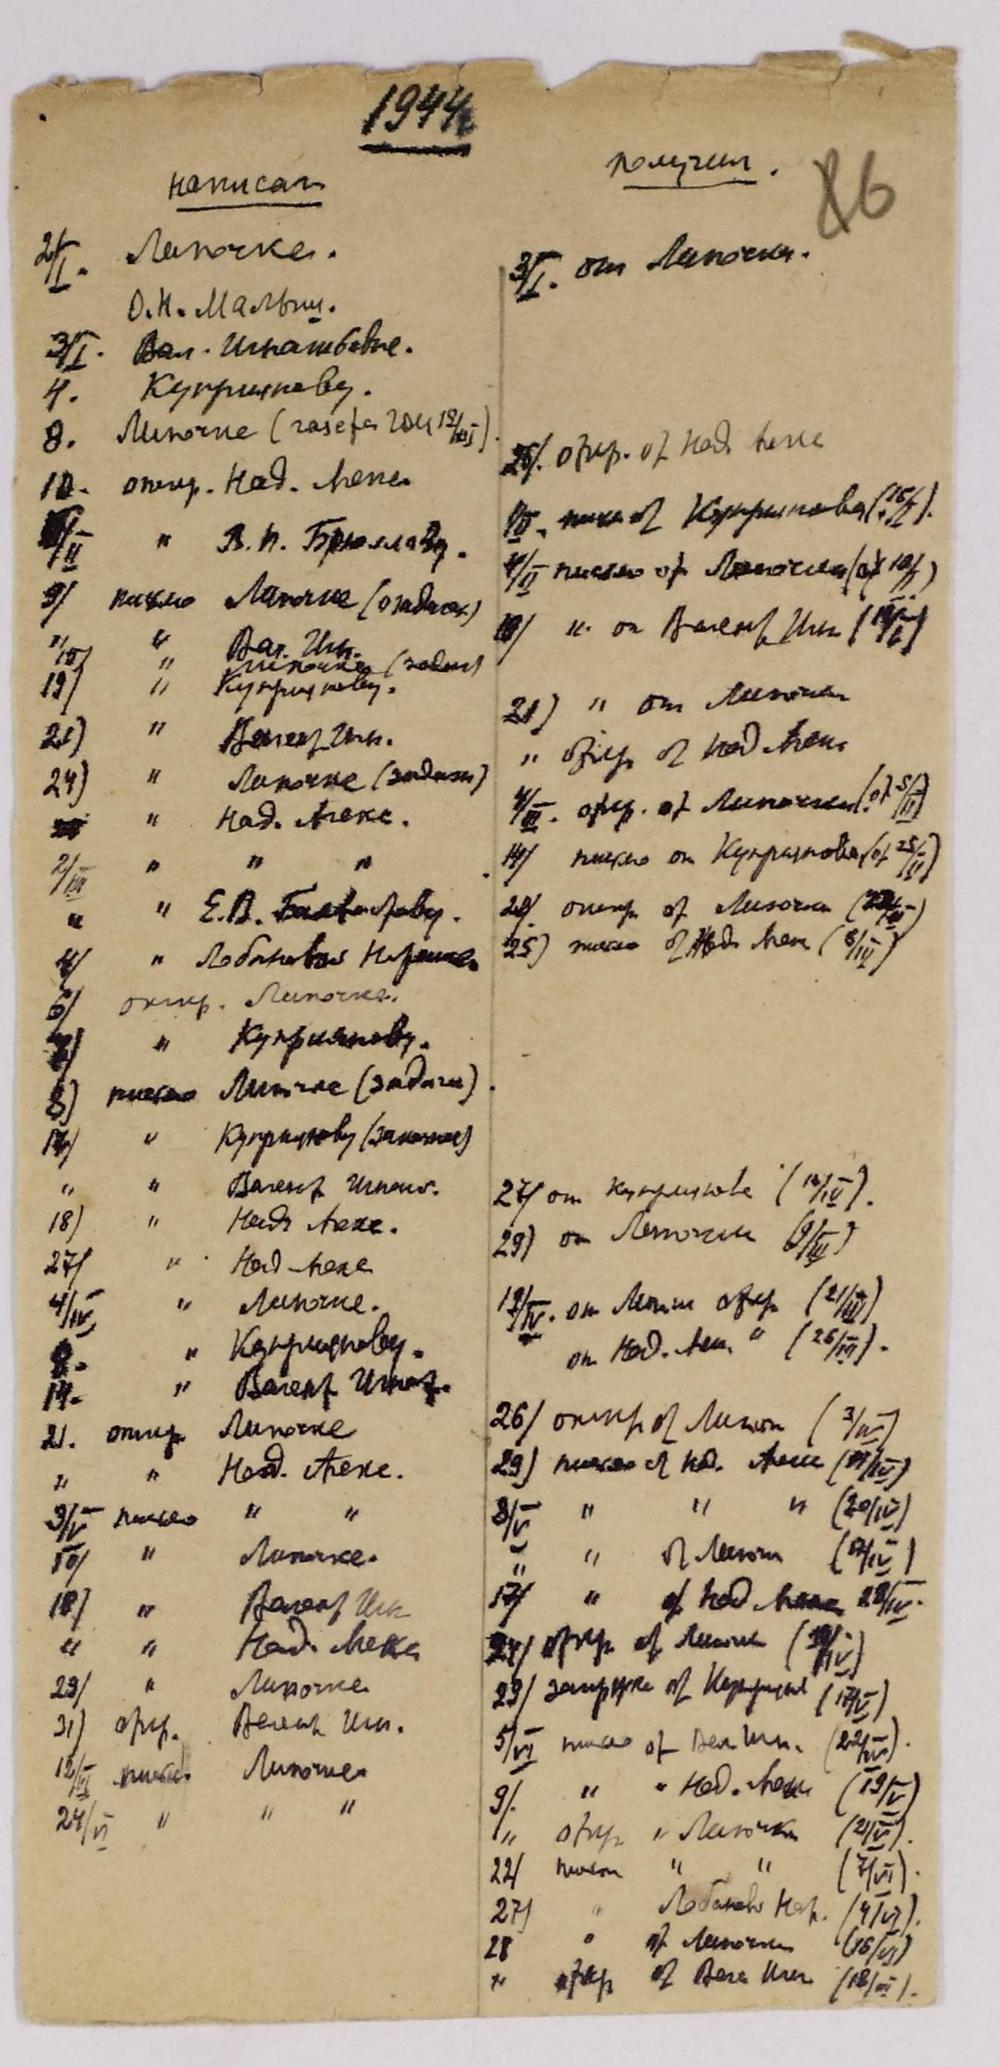 1944
написал
получил.
86
2/I. Липочке.
О.Н. Мальвин.
3/I. Вал. Игнатьевне.
4. Куприянову.
8. Липочке (газета
10. откр. Над. Алекс.
/II " В. Н.
9/ письмо Липочке (о задачах)
"/10/ " Вал. Игн.
" Липочке (задачи)
19/ " Куприянову.
21) " Валент Игн.
24) " Липочке (задачи)
" Над. Алекс.
2/III " " "
" " Е.В.
4/ " Лобановой
6/ откр. Липочке.
" Куприянову.
8) письмо Липочке (задачи).
17/ " Куприянову
" " Валент Игнат.
18) " Над Алекс.
27/ " Над Алекс
4/IV, " Липочке.
8. " Куприянову.
14. " Валент Игнат.
21. откр Липочке
" " Над. Алекс.
3/V письмо " "
10/ " Липочке.
18) " Валент Игн
" " Над. Алекс
23/ " Липочке
31) откр. Валент Игн.
12/VI письмо Липочке
24/VI " " "
3/I. от Липочки.
26/. откр. от Над Алекс
1/II. письмо от Куприянова (26/I).
4/II письмо от Липочки (от
18/ " от Валент Игн
21) " от Липочки
" откр от Над Алекс
4/III. откр. от Липочки (от 5/II)
14/ письмо от Куприянова (от 25/II)
24/. откр от Липочки
25) письмо от Над Алек
27/ от Куприянова (14/IV).
29) от Липочки (9/III)
19/IV. от Липочки откр (21/III)
от Над. Алек. " (26/III).
26/ откр от Липоч (3/IV)
29) письмо от Над. Алекс
3/V " " " (20/IV)
" " от Липоч
17/ " от Над Алекс 28/IV.
24/ откр от Липочки
29/ от Куприян (17/V)
5/VI письмо от Вал Игн. (22/IV).
9/. " " Над. Алек (19/V)
" откр " Липочки (21/V).
22/ письмо " " (7/VI).
27) " Лобанов (4/VI).
28 " от Липочки (16/VI)
" откр от Вал Игн (18/VI).